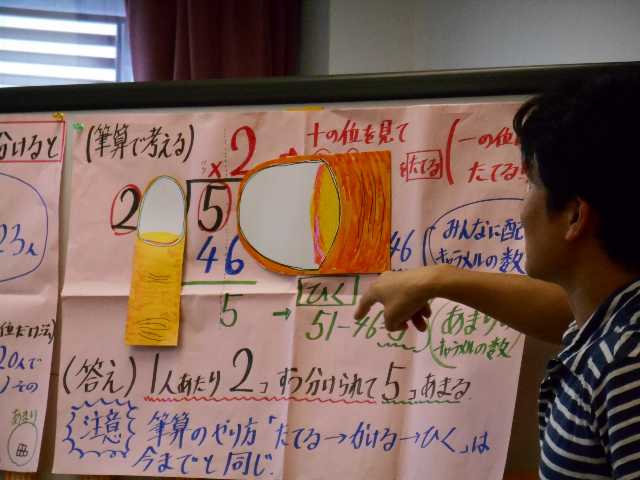 分けると
23人
20人で
その
あまり
(筆算で考える)
2
×
十の位を見て
を たてる
(一の位
たてる
2
5
46
46
5
→
ひく
51-46=5
みんなに配
キャラメルの数
あまり
キャラメルの数
(答え) 1人あたり2コずつ分けられて5コあまる.
注意
筆算のやり方「たてる→かける→ひく」は
今までと同じ.